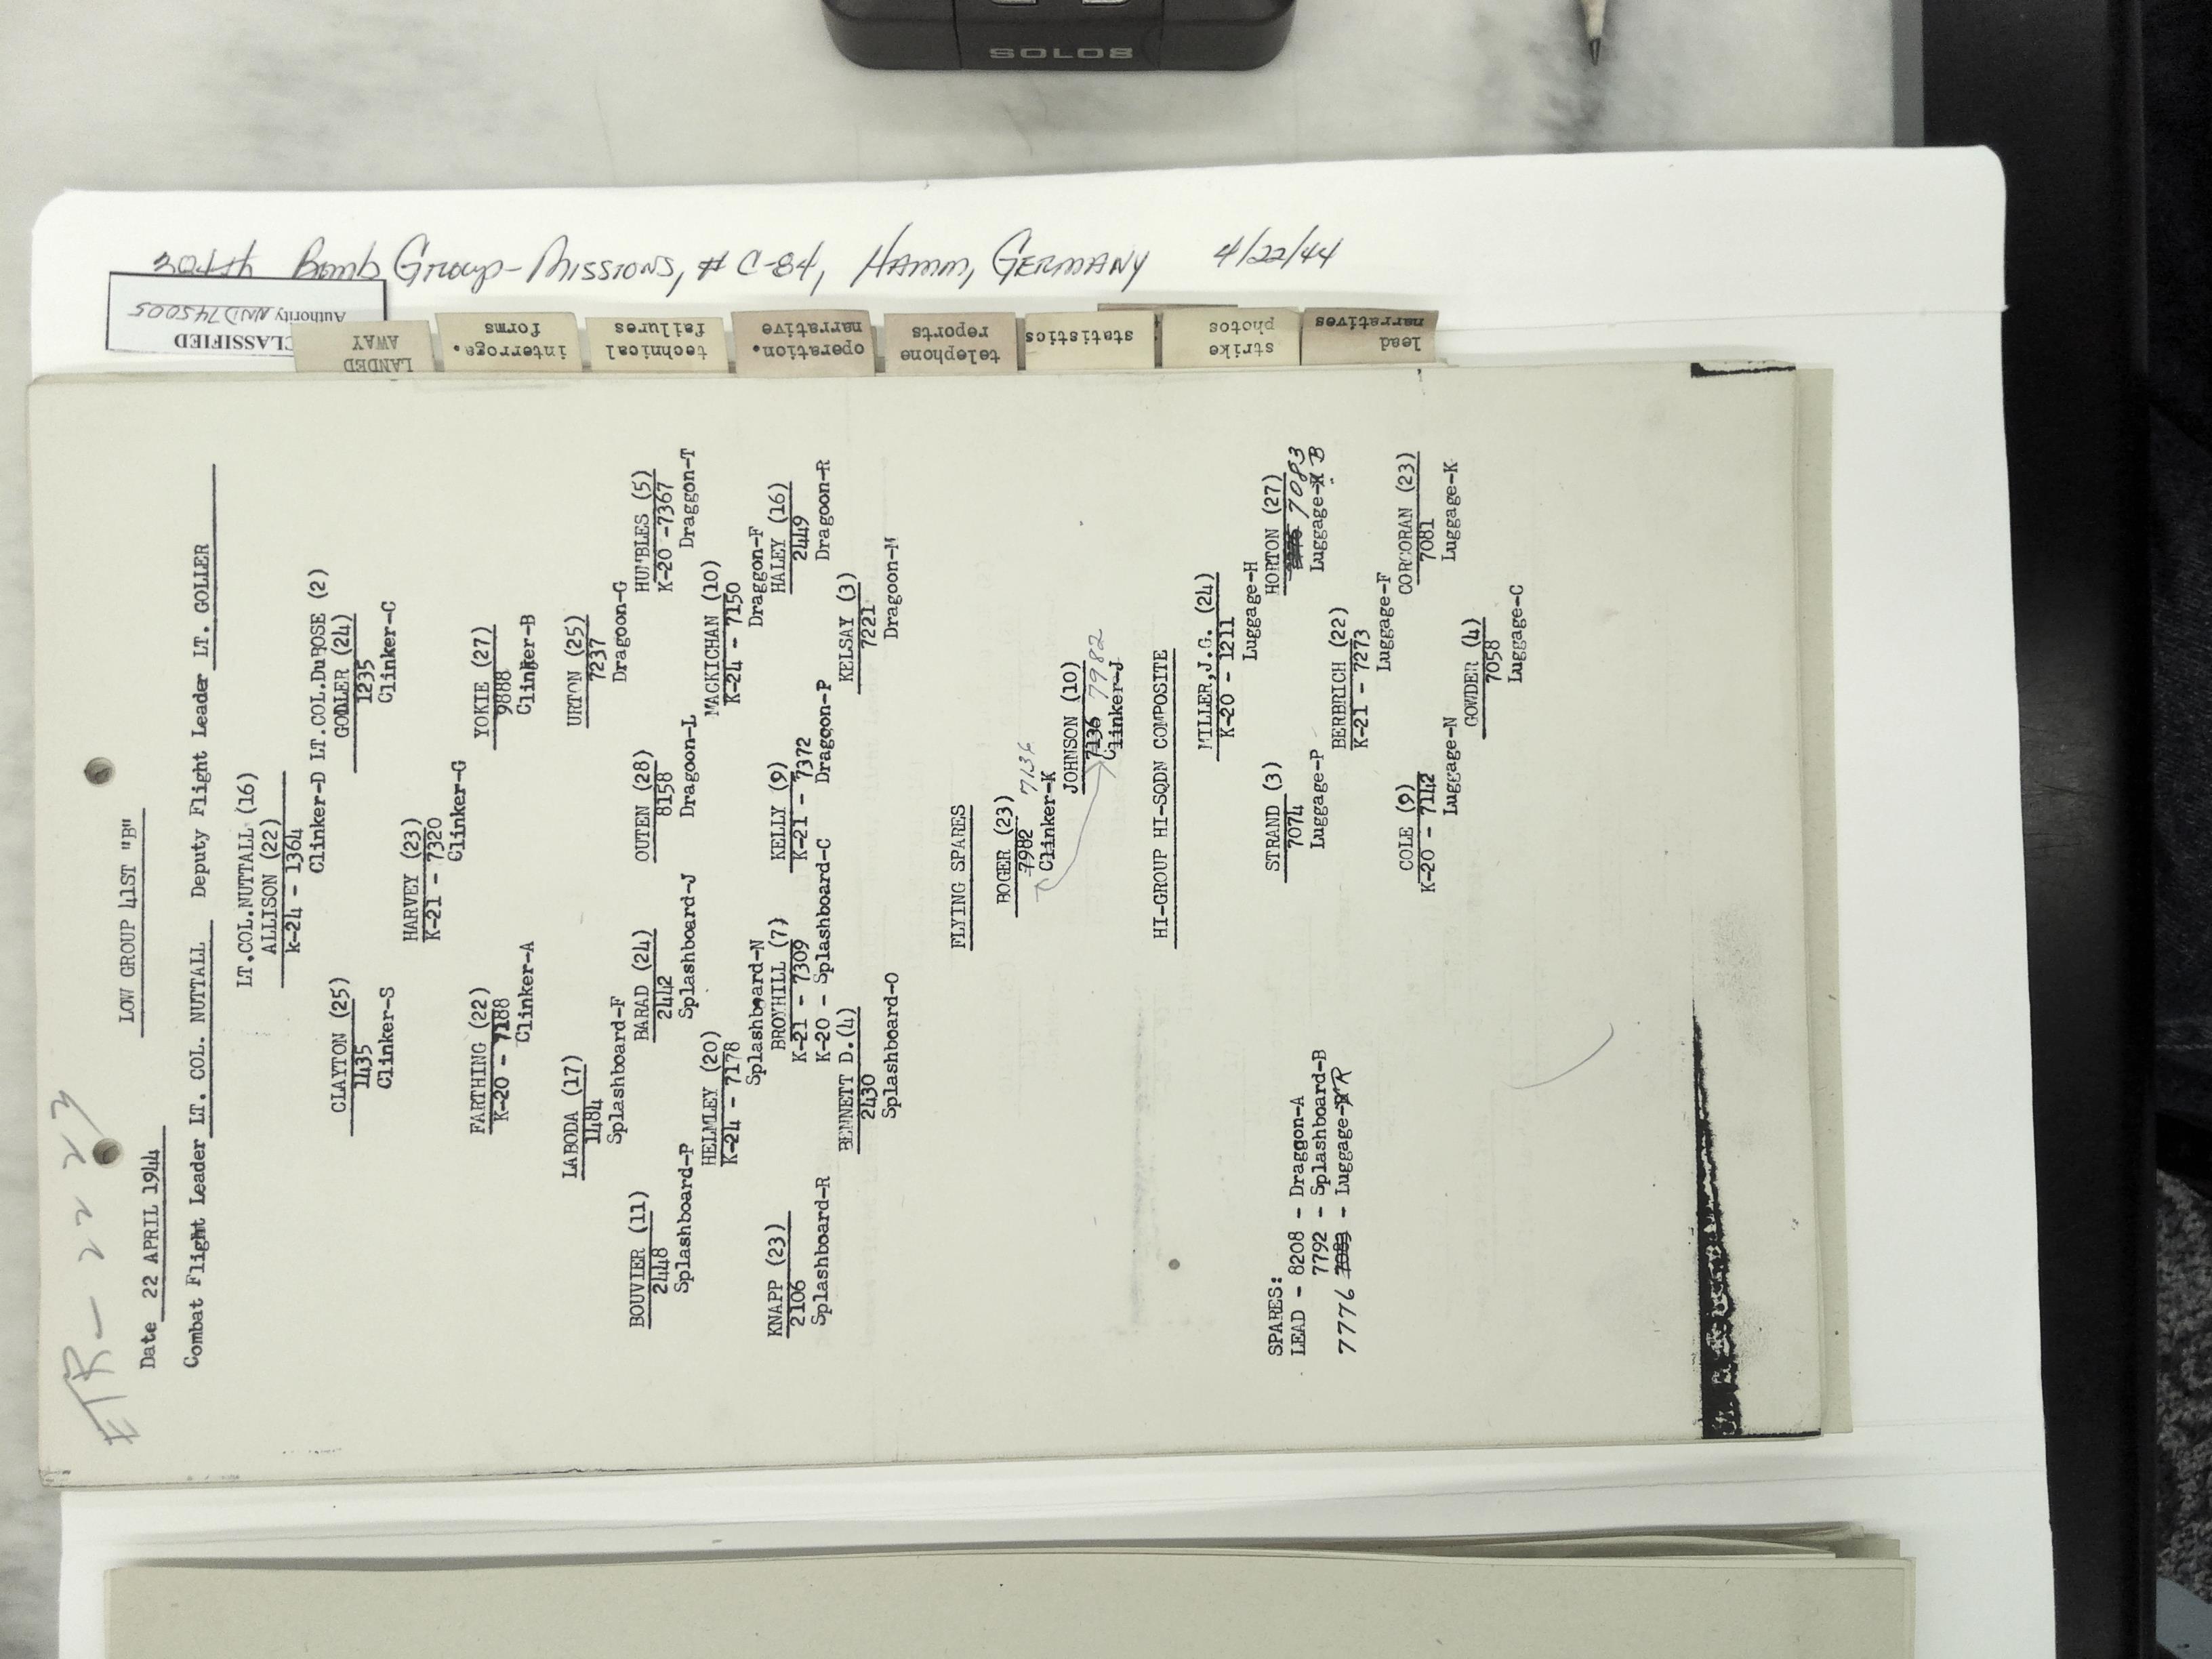 SOLO8
384th Bomb Group-Missions, # C-84, Hamm, Germany 4/22/44
CLASSIFIED
Authority NND745005
LANDED
AWAY
interroga.
forms
technical
failures
operation.
narrative
telephone
reports
statistics
strike
photos
lead
narratives
Date 22 APRIL 1944
LOW GROUP 41ST "B"
Combat Flight Leader LT. COL. NUTTALL Deputy Flight Leader LT. GOLLER
LT.COL.NUTTALL (16)
ALLISON (22)
k-24 - 1364
Clinker-D
LT.COL.DuBOSE (2)
GODLER (24)
1235
Clinker-C
CLAYTON (25)
1435
Clinker-S
HARVEY (23)
K-21 - 7320
Clinker-G
FARTHING (22)
K-20 - 7188
Clinker-A
YOKIE (27)
9888
Clinker-B
LABODA (17)
1484
Splashboard-F
URTON (25)
7237
Dragoon-G
BOUVIER (11)
2448
Splashboard-P
BARAD (24)
2442
Splashboard-J
OUTEN (28)
8158
Dragoon-L
HUMBLES (5)
K-20 -7367
Draggon-T
HELMLEY (20)
K-24 - 7178
Splashboard-N
MACKICHAN (10)
K-24 - 7150
Draggon-F
KNAPP (23)
2106
Splashboard-R
BROYHILL (7)
K-21 - 7309
K-20 - Splashboard-C
KELLY (9)
K-21 - 7372
Dragoon-P
HALEY (16)
2449
Dragoon-R
BENNETT D.(4)
2430
Splashboard-O
KELSAY (3)
7221
Dragoon-M
FLYING SPARES
BOGER (23)
7982 7136
Clinker-K
JOHNSON (10)
7136 7982
Clinker-J
HI-GROUP HI-SQDN COMPOSITE
MILLER,J.G. (24)
K-20 - 1211
Luggage-H
STRAND (3)
7074
Luggage-P
HORTON (27)
7083
Luggage- B
BERBRICH (22)
K-21 - 7273
Luggage-F
COLE (9)
K-20 - 7142
Luggage-N
CORCORAN (23)
7081
Luggage-K
GOWDER (4)
7058
Luggage-C
SPARES:
LEAD - 8208 - Draggon-A
7792 - Splashboard-B
7776 7083 - Luggage- R